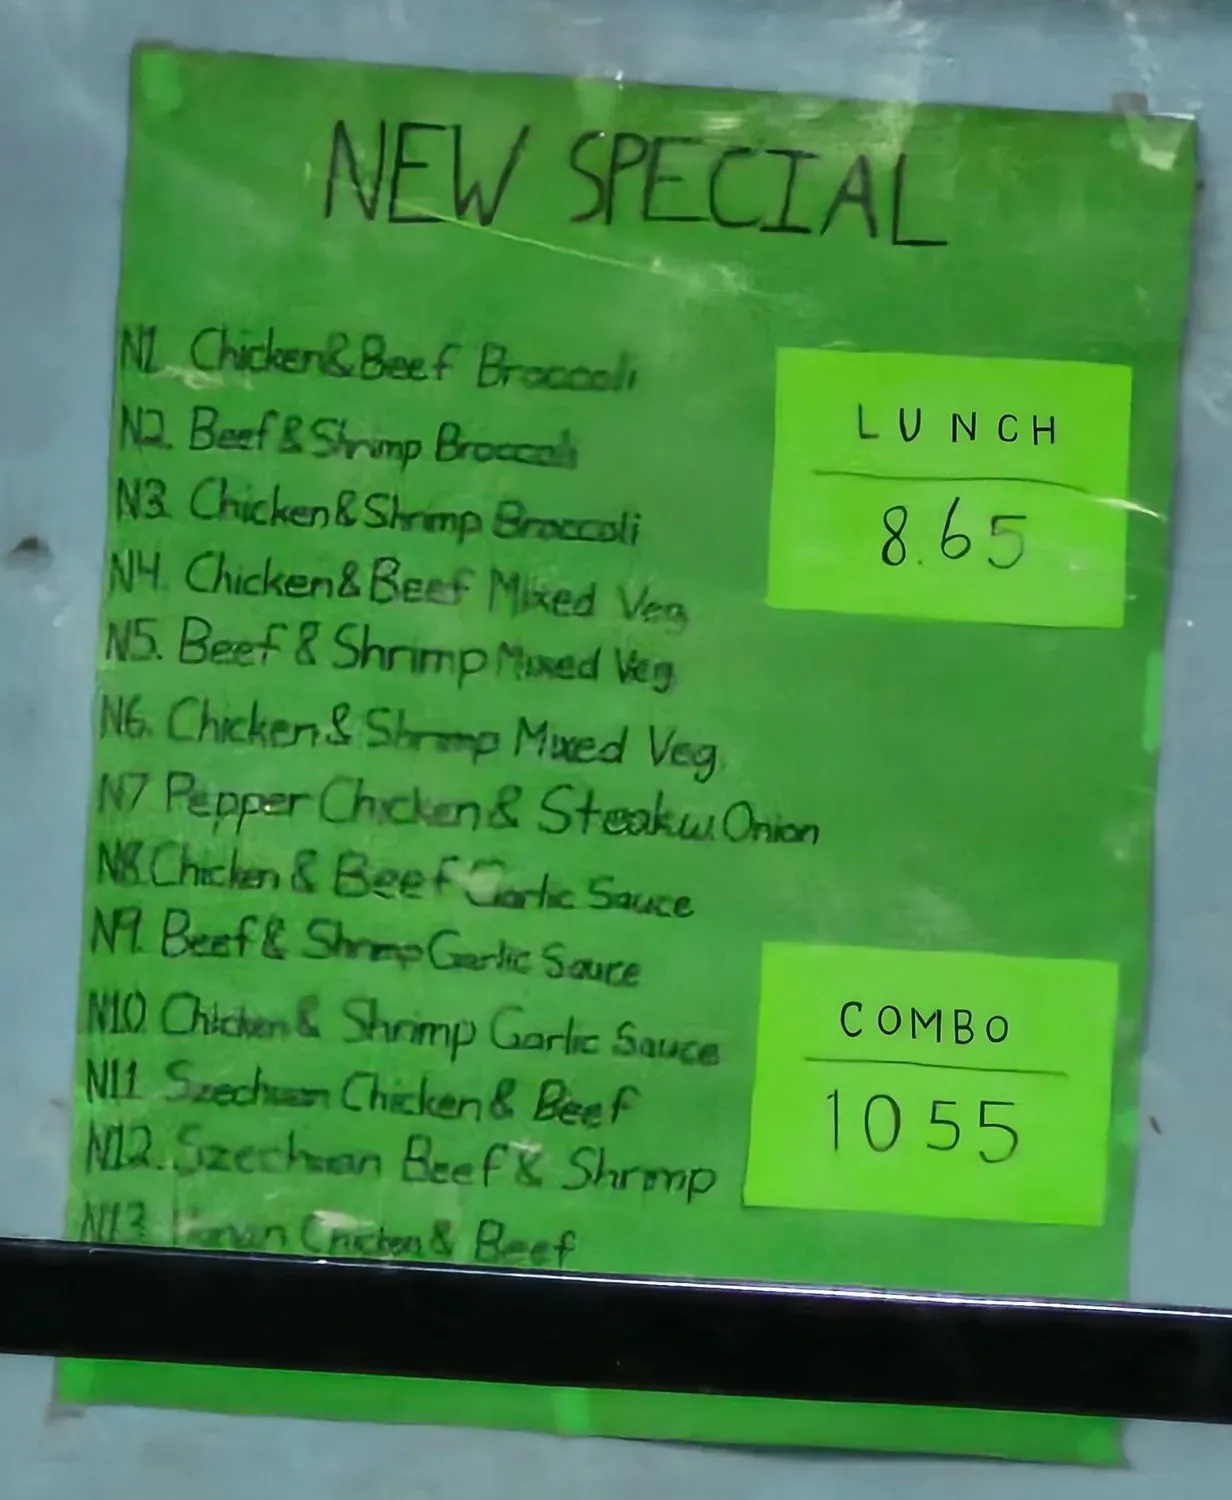 NEW SPECIAL
N1. Chicken & Beef Broccoli
N2. Beef & Shrimp Broccoli
N3. Chicken & Shrimp Broccoli
N4. Chicken & Beef Mixed Veg
N5. Beef & Shrimp Mixed Veg
N6. Chicken & Shrimp Mixed Veg.
N7 Pepper Chicken & Steak w. Onion
N8. Chicken & Beef Garlic Sauce
N9. Beef & Shrimp Garlic Sauce
N10. Chicken & Shrimp Garlic Sauce
N11. Szechuan Chicken & Beef
N12. Szechuan Beef & Shrimp
N13. Hunan Chicken & Beef
LUNCH
8.65
COMBO
10 55